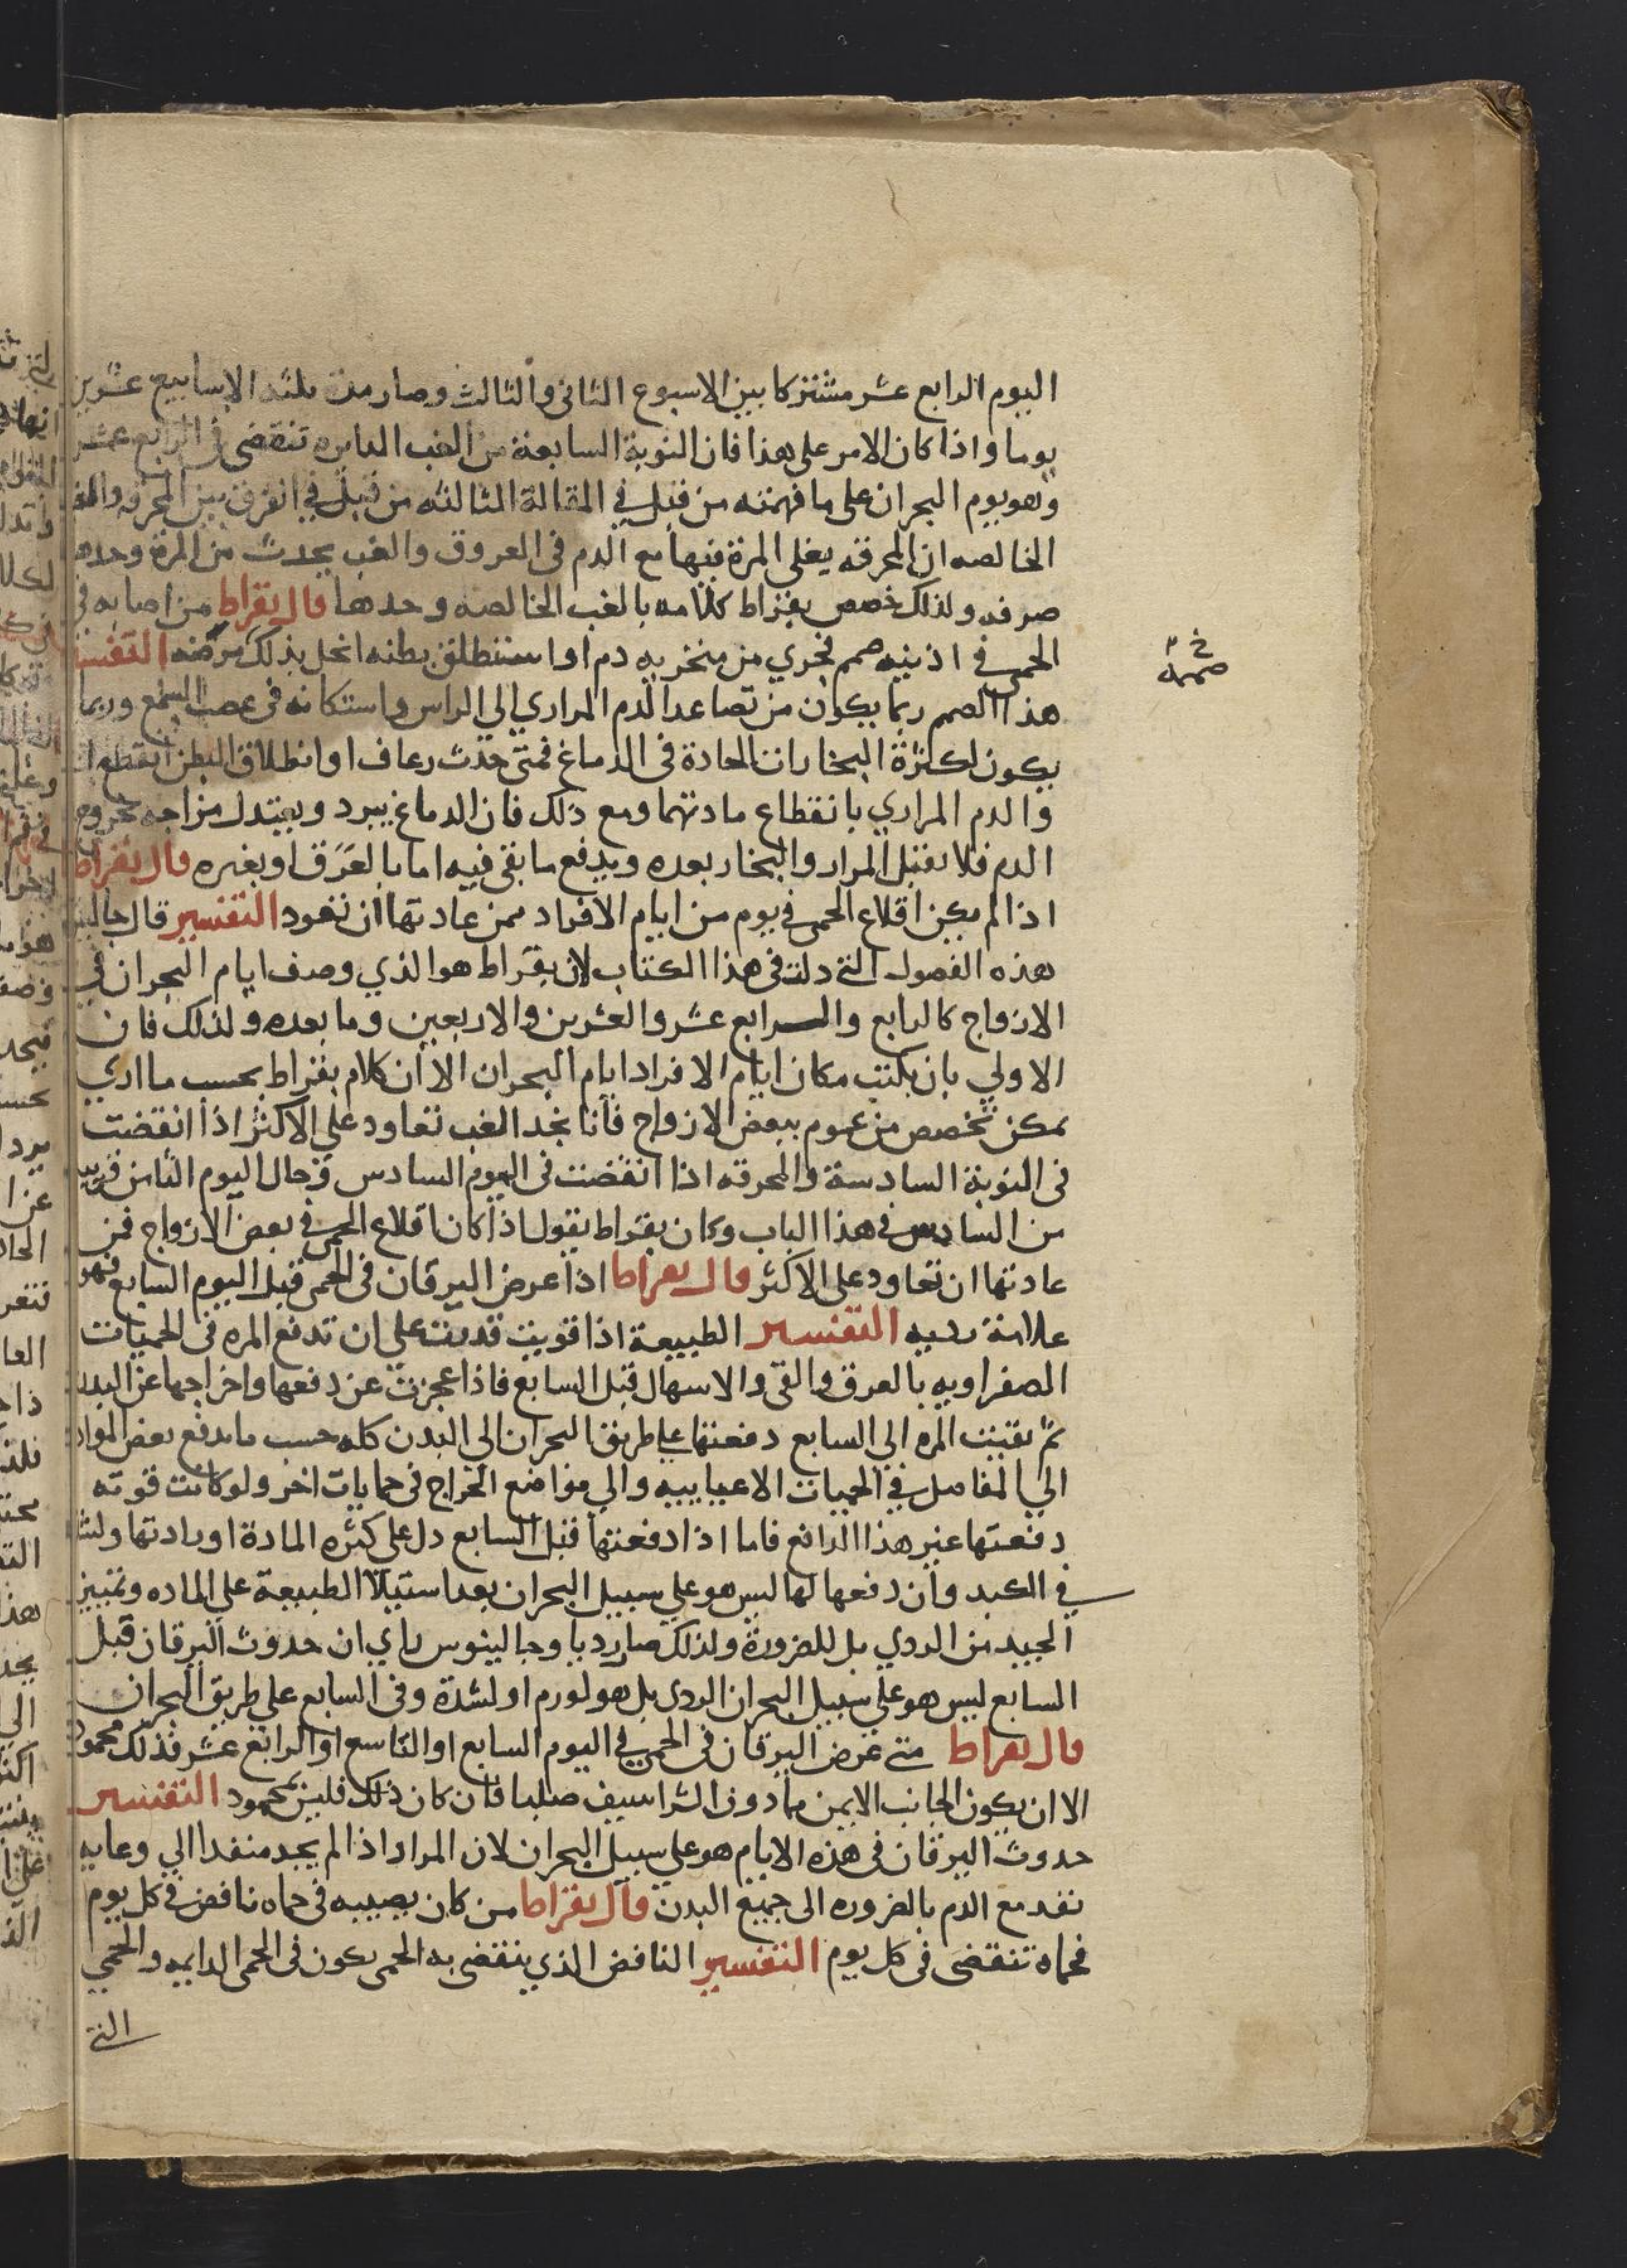 اليوم الرابع عشر مشتركا بين الاسبوع الثانى والثالث وصار مدة ثلثة الاسابيع عشرين
يوما واذا كان الامر على هذا فان النوبة السابعة من الغب الدايره تنقضى فى الرابع عشر
وهو يوم البحران على ما فهمته من قبل في المقالة الثالثه من قبل في الفرق بين المحرقه والغب
الخالصه ان المحرقه يغلى المرة فيها مع الدم فى العروق والغب يحدث من المرة وحدها
صرفه ولذلك خصص بقراط كلامه بالغب الخالصه وحدها قال بقراط من اصابه في
الحمى في اذنيه صمم فجري من منخريه دم او استنطلق بطنه انحل بذلك مرضه التفسير
خ م
صممه
هذا الصمم ربما يكون من تصاعد الدم المراري الي الراس واستكانه فى عصب السمع وربما
يكون لكثرة البخارات الحادة فى الدماغ فمتى حدث رعاف او انطلاق البطن انقطع
والدم المراري بانقطاع مادتهما ومع ذلك فان الدماغ يبرد ويعتدل مزاجه بخروج
الدم فلا يقبل المرار والبخار بعده ويدفع ما بقى فيه اما بالعرق او بغيره قال بقراط
اذا لم يكن اقلاع الحمى في يوم من ايام الافراد فمن عادتها ان تعود التفسير قال جالينو
هذه الفصول التي دلت فى هذا الكتاب لان بقراط هو الذي وصف ايام البحران في
الازواج كالرابع والرابع عشر والعشرين والاربعين وما بعده ولذلك فان
الاولي بان يكتب مكان ايام الافراد ايام البحران الا ان كلام بقراط بحسب ما اري
يمكن تخصص من عموم ببعض الازواج فانا نجد الغب تعاود علي الاكثر اذا انقضت
فى النوبة السادسة والمحرقه اذا انقضت فى اليوم السادس وحال اليوم الثامن قريب
من السادس في هذا الباب وكان بقراط يقول اذا كان اقلاع الحمى في بعض الازواج فمن
عادتها ان تعاود على الاكثر قال بقراط اذا عرض اليرقان فى الحمى قبل اليوم السابع فهو
علامة رديه التفسير الطبيعة اذا قويت قدرت على ان تدفع المره فى الحميات
الصفراويه بالعرق والقي والاسهال قبل السابع فاذا عجزت عن دفعها واخراجها عن البدن
ثم بقيت المره الي السابع دفعتها على طريق البحران الي البدن كله حسب ما يدفع بعض المواد
الي المفاصل في الحميات الاعيايبيه والي مواضع الخراج فى حمايات اخر ولو كانت قوته
دفعتها غير هذا الدافع فاما اذا دفعتها قبل السابع دل على كثره المادة او رداتها ولشد
في الكبد وان دفعها لها ليس هو علي سبيل البحران بعد استيلا الطبيعة على الماده وتمييز
الجيد من الردي بل للضرورة ولذلك صار رديا وجالينوس راي ان حدوث اليرقان قبل
السابع ليس هو علي سبيل البحران الردى بل هو لورم او لشدة وفى السابع على طريق البحران
قال بقراط متى عرض اليرقان فى الحمى في اليوم السابع او التاسع او الرابع عشر فذلك محمود
الا ان يكون الجانب الايمن مما دون الشراسيف صلبا فان كان ذلك فليس بمحمود التفسير
حدوث اليرقان فى هذه الايام هو علي سبيل البحران لان المرار اذا لم يجد منفدا الي وعايه
نفد مع الدم بالضروره الى جميع البدن قال بقراط من كان يصيبه فى حماه نافض في كل يوم
فحماه تنقضى فى كل يوم التفسير النافض الذي ينقضى به الحمى يكون فى الحمى الدايمه والحمي
التي